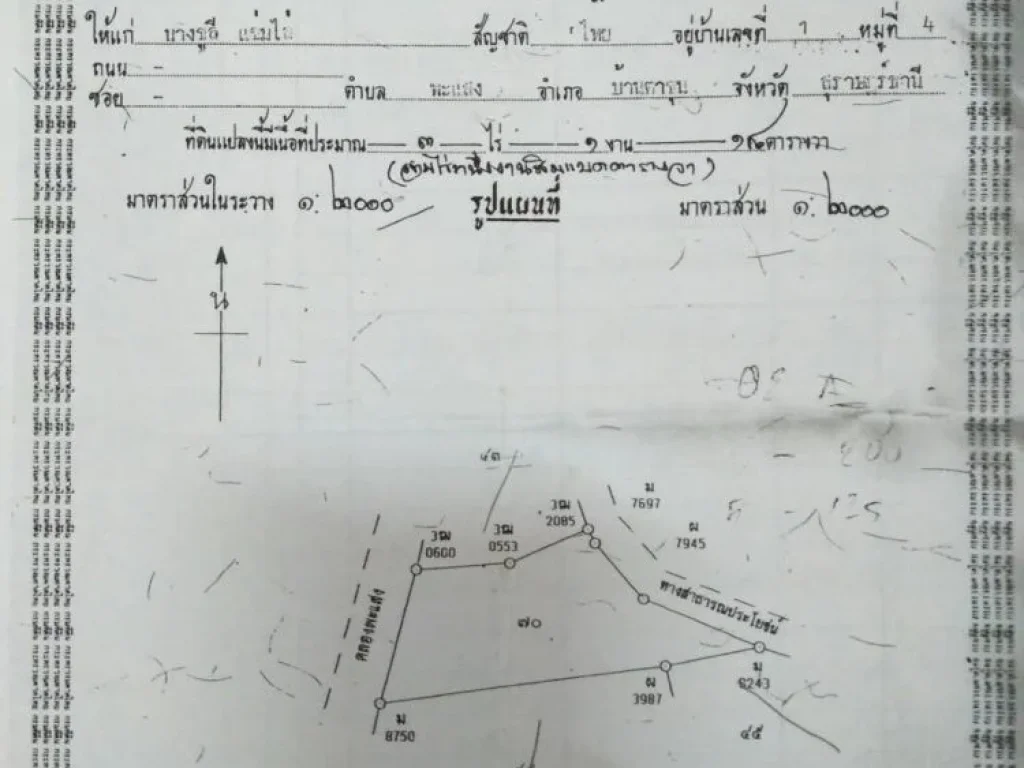 ให้แก่ บางชูลี สัญชาติ ไทย อยู่บ้านเลขที่ 1 หมู่ที่ 4
ถนน -
ซอย - ตำบล พะแสง อำเภอ บ้านตาขุน จังหวัด สุราษฎร์ธานี
ที่ดินแปลงนี้มีเนื้อที่ประมาณ ๓ ไร่ ๑ งาน ๑๘ ตารางวา
(สามไร่หนึ่งงานสิบแปดตารางวา)
มาตราส่วนในระวาง ๑: ๒๐๐๐ รูปแผนที่ มาตราส่วน ๑: ๒๐๐๐
น
๔๓
ม
7697
ฝ
7945
3ฒ
2085
3ฒ
0600
3ฒ
0553
ทางสาธารณประโยชน์
คลองพะแสง
๗๐
มุ
6243
ฝ
3987
ม
8750
๔๕